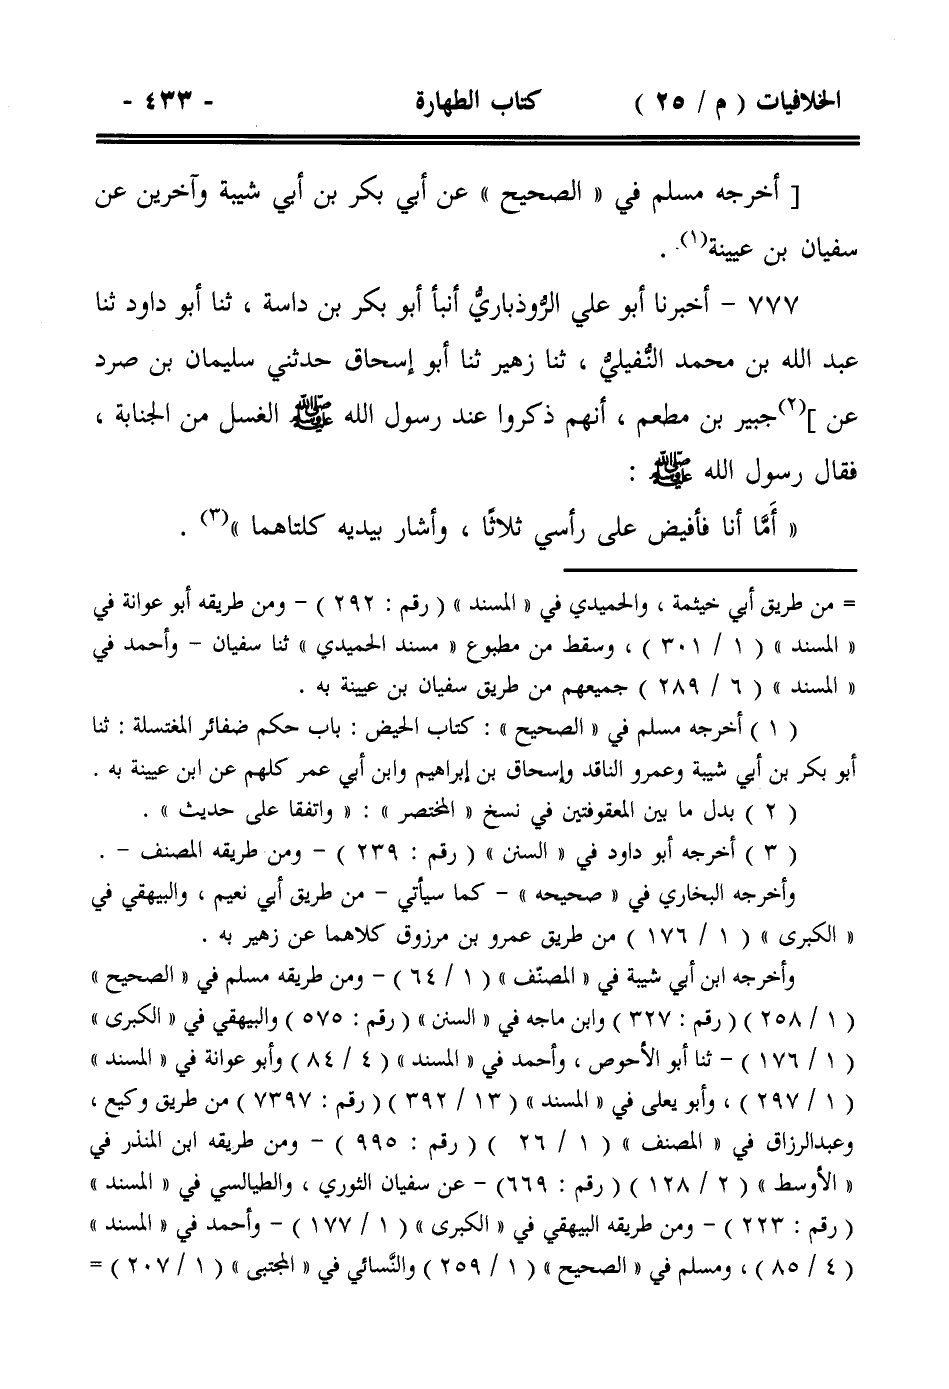 الخلافيات ( م / ٢٥ ) كتاب الطهارة - ٤٣٣ -
[ أخرجه مسلم في « الصحيح » عن أبي بكر بن أبي شيبة وآخرين عن
سفيان بن عيينة(١) .
٧٧٧ - أخبرنا أبو علي الرُّوذباريُّ أنبأ أبو بكر بن داسة ، ثنا أبو داود ثنا
عبد الله بن محمد النُّفيليُّ ، ثنا زهير ثنا أبو إسحاق حدثني سليمان بن صرد
عن ](٢)جبير بن مطعم ، أنهم ذكروا عند رسول الله ﷺ الغسل من الجنابة ،
فقال رسول الله ﷺ :
« أَمَّا أنا فأفيض على رأسي ثلاثًا ، وأشار بيديه كلتاهما »(٣) .
= من طريق أبي خيثمة ، والحميدي في « المسند » ( رقم : ٢٩٢ ) - ومن طريقه أبو عوانة في
« المسند » ( ١ / ٣٠١ ) ، وسقط من مطبوع « مسند الحميدي » ثنا سفيان - وأحمد في
« المسند » ( ٦ / ٢٨٩ ) جميعهم من طريق سفيان بن عيينة به .
( ١ ) أخرجه مسلم في « الصحيح » : كتاب الحيض : باب حكم ضفائر المغتسلة : ثنا
أبو بكر بن أبي شيبة وعمرو الناقد وإسحاق بن إبراهيم وابن أبي عمر كلهم عن ابن عيينة به .
( ٢ ) بدل ما بين المعقوفتين في نسخ « المختصر » : « واتفقا على حديث » .
( ٣ ) أخرجه أبو داود في « السنن » ( رقم : ٢٣٩ ) - ومن طريقه المصنف - .
وأخرجه البخاري في « صحيحه » - كما سيأتي - من طريق أبي نعيم ، والبيهقي في
« الكبرى » ( ١ / ١٧٦ ) من طريق عمرو بن مرزوق كلاهما عن زهير به .
وأخرجه ابن أبي شيبة في « المصنّف » ( ١ / ٦٤ ) - ومن طريقه مسلم في « الصحيح »
( ١ / ٢٥٨ ) ( رقم : ٣٢٧ ) وابن ماجه في « السنن » ( رقم : ٥٧٥ ) والبيهقي في « الكبرى »
( ١ / ١٧٦ ) - ثنا أبو الأحوص ، وأحمد في « المسند » ( ٤ / ٨٤ ) وأبو عوانة في « المسند »
( ١ / ٢٩٧ ) ، وأبو يعلى في « المسند » ( ١٣ / ٣٩٢ ) ( رقم : ٧٣٩٧ ) من طريق وكيع ،
وعبدالرزاق في « المصنف » ( ١ / ٢٦ ) ( رقم : ٩٩٥ ) - ومن طريقه ابن المنذر في
« الأوسط » ( ٢ / ١٢٨ ) ( رقم : ٦٦٩) - عن سفيان الثوري ، والطيالسي في « المسند »
( رقم : ٢٢٣ ) - ومن طريقه البيهقي في « الكبرى » ( ١ / ١٧٧ ) - وأحمد في « المسند »
( ٤ / ٨٥ ) ، ومسلم في « الصحيح » ( ١ / ٢٥٩ ) والنَّسائي في « المجتبى » ( ١ / ٢٠٧ ) =